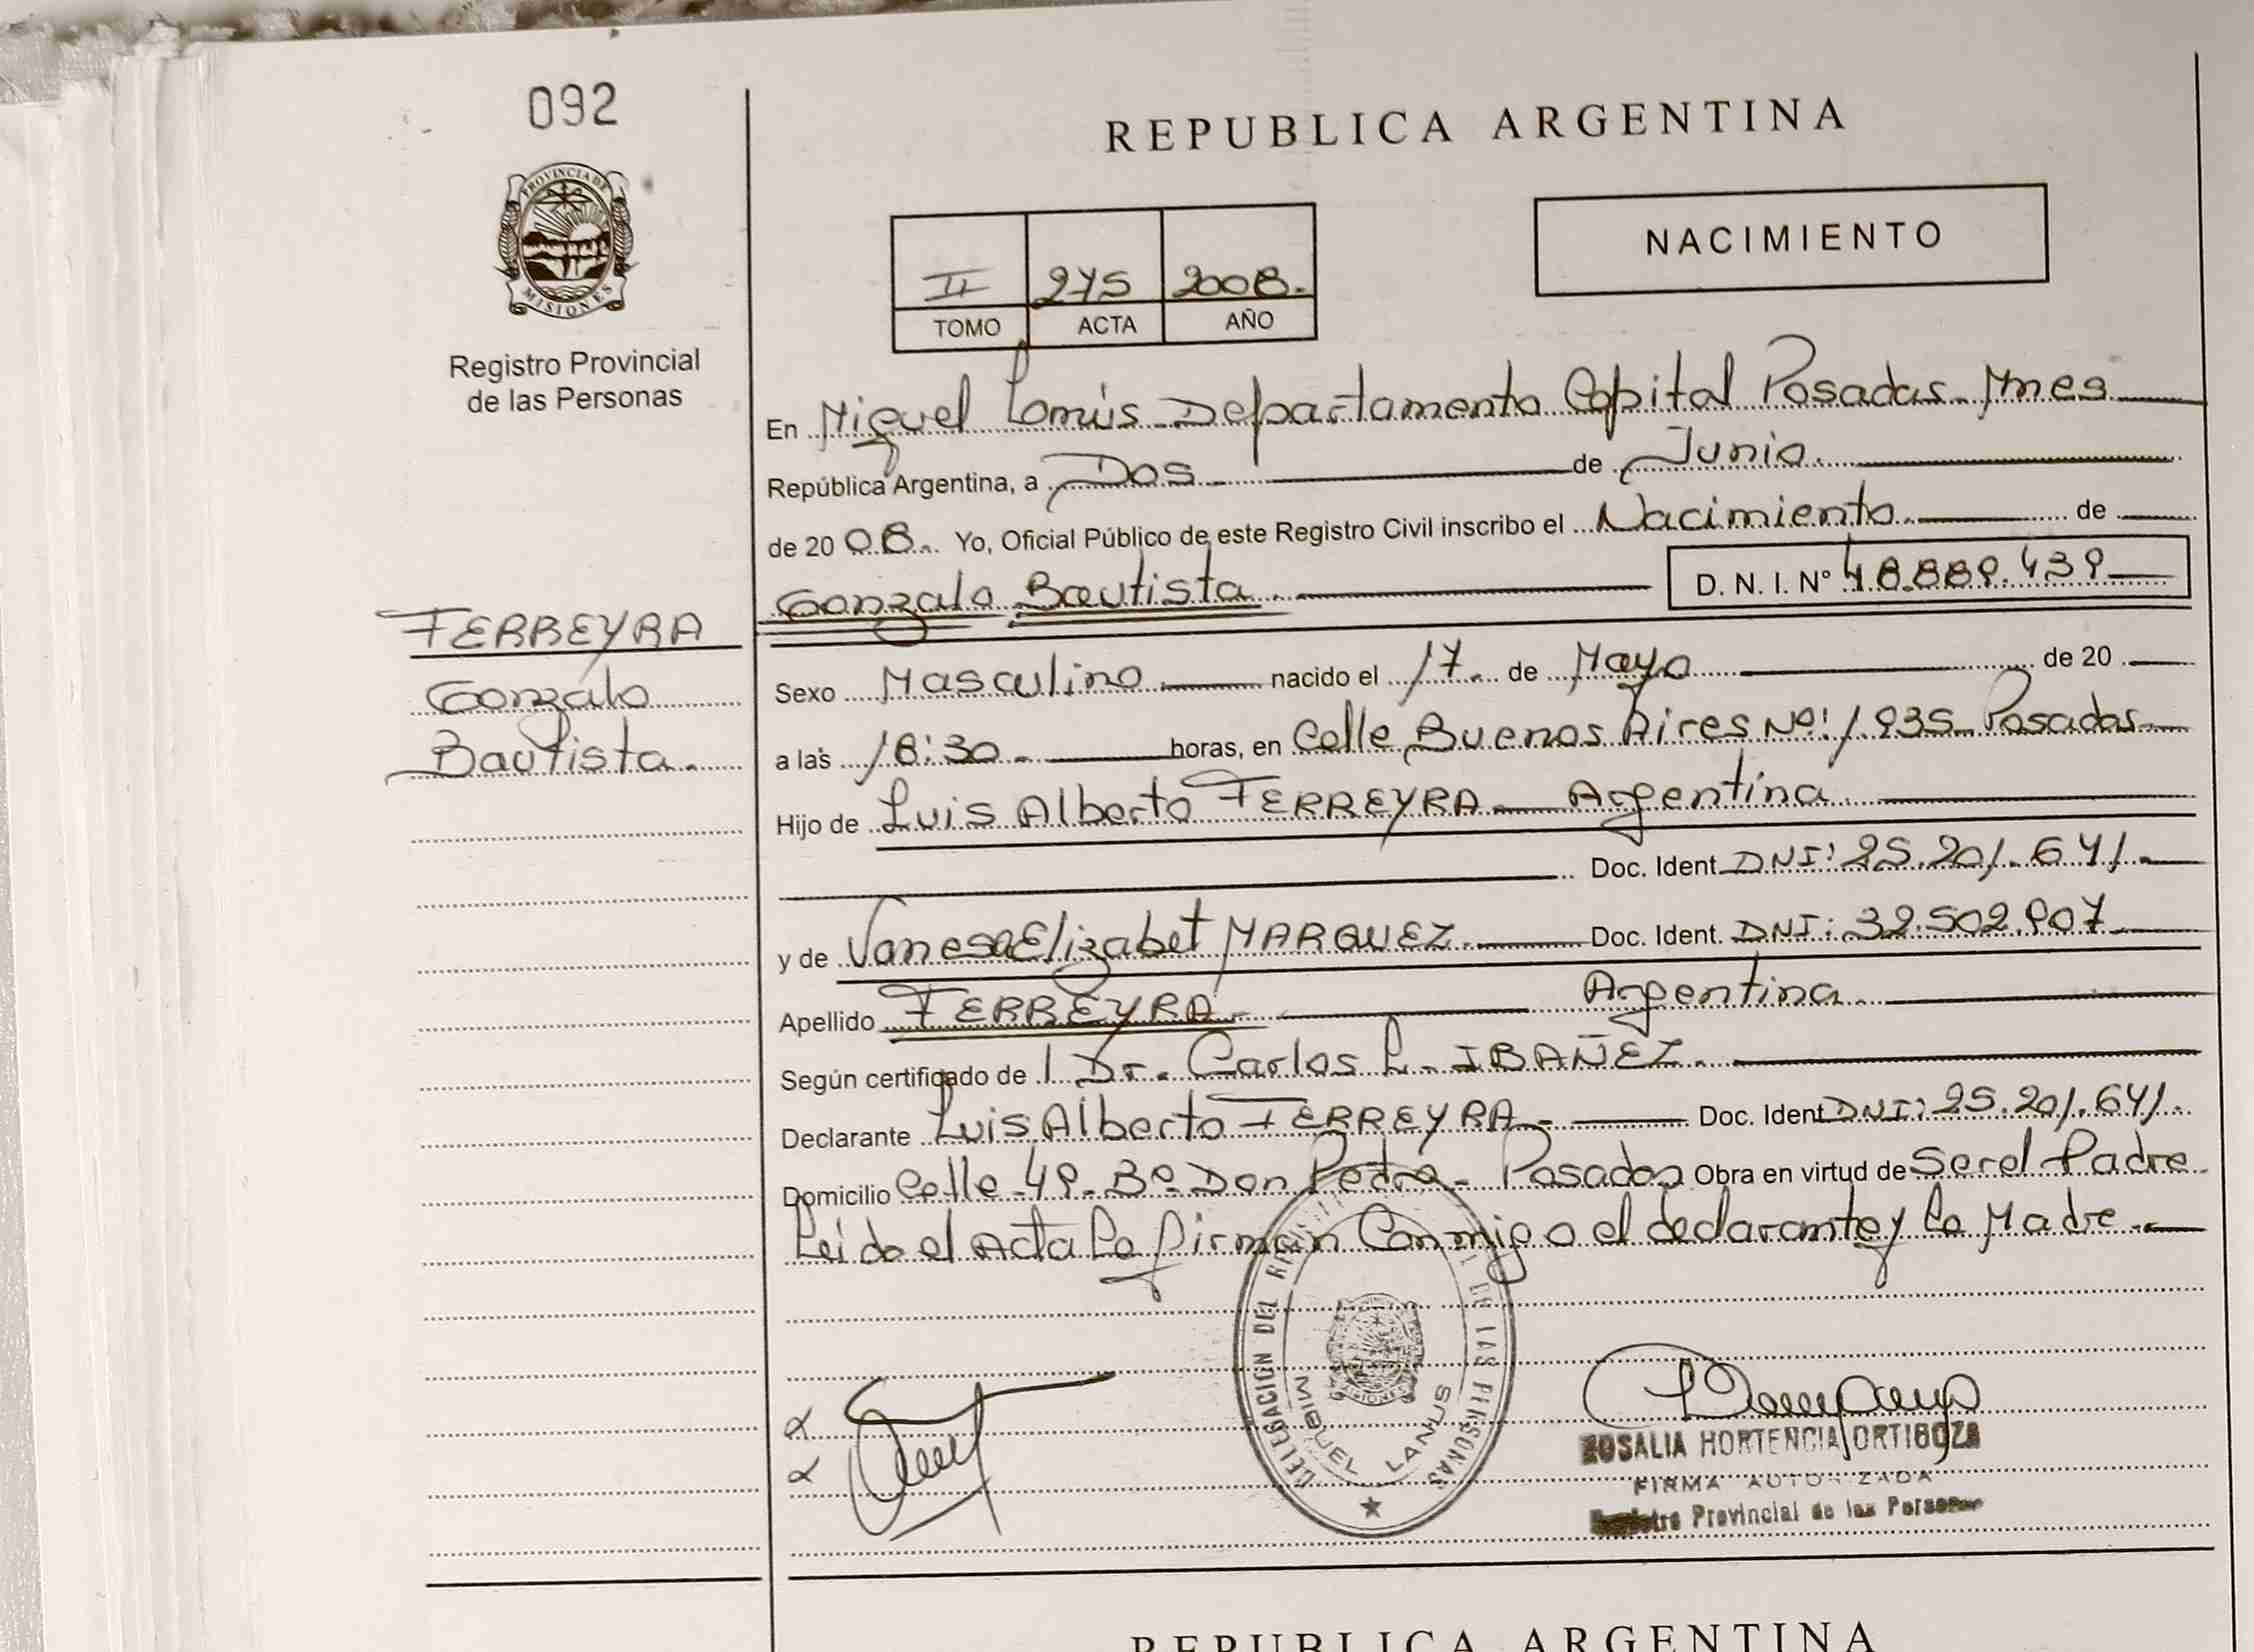 092
REPUBLICA ARGENTINA
PROVINCIA DE
MISIONES
Registro Provincial
de las Personas
II 275 2008.
TOMO ACTA AÑO
NACIMIENTO
En Miguel Lanús Departamento Capital Posadas Mnes
República Argentina, a Dos de Junio.
de 20 08. Yo, Oficial Público de este Registro Civil inscribo el Nacimiento de
Gonzalo Bautista. D. N. I. Nº 48.889.439
FERREYRA
Gonzalo
Bautista.
Sexo Masculino nacido el 17. de Mayo de 20
a las 18:30 horas, en Calle Buenos Aires Nº: 1.935 Posadas
Hijo de Luis Alberto FERREYRA Argentina
Doc. Ident. DNI: 25.201.641.
y de Vanesa Elizabet MARQUEZ. Doc. Ident. DNI: 32.502.907
Apellido FERREYRA Argentina
Según certificado de l Dr. Carlos L. IBAÑEZ.
Declarante Luis Alberto FERREYRA Doc. Ident DNI: 25.201.641.
Domicilio Calle 49 Bº Don Pedro - Posadas Obra en virtud de Ser el Padre
Leido el Acta La firman Conmigo el declarante y la Madre.
DELEGACION DEL DE LAS PERSONAS
MISIONES
MIGUEL LANUS
ROSALIA HORTENCIA ORTIGOZA
FIRMA AUTORIZADA
Registro Provincial de las Personas
REPUBLICA ARGENTINA